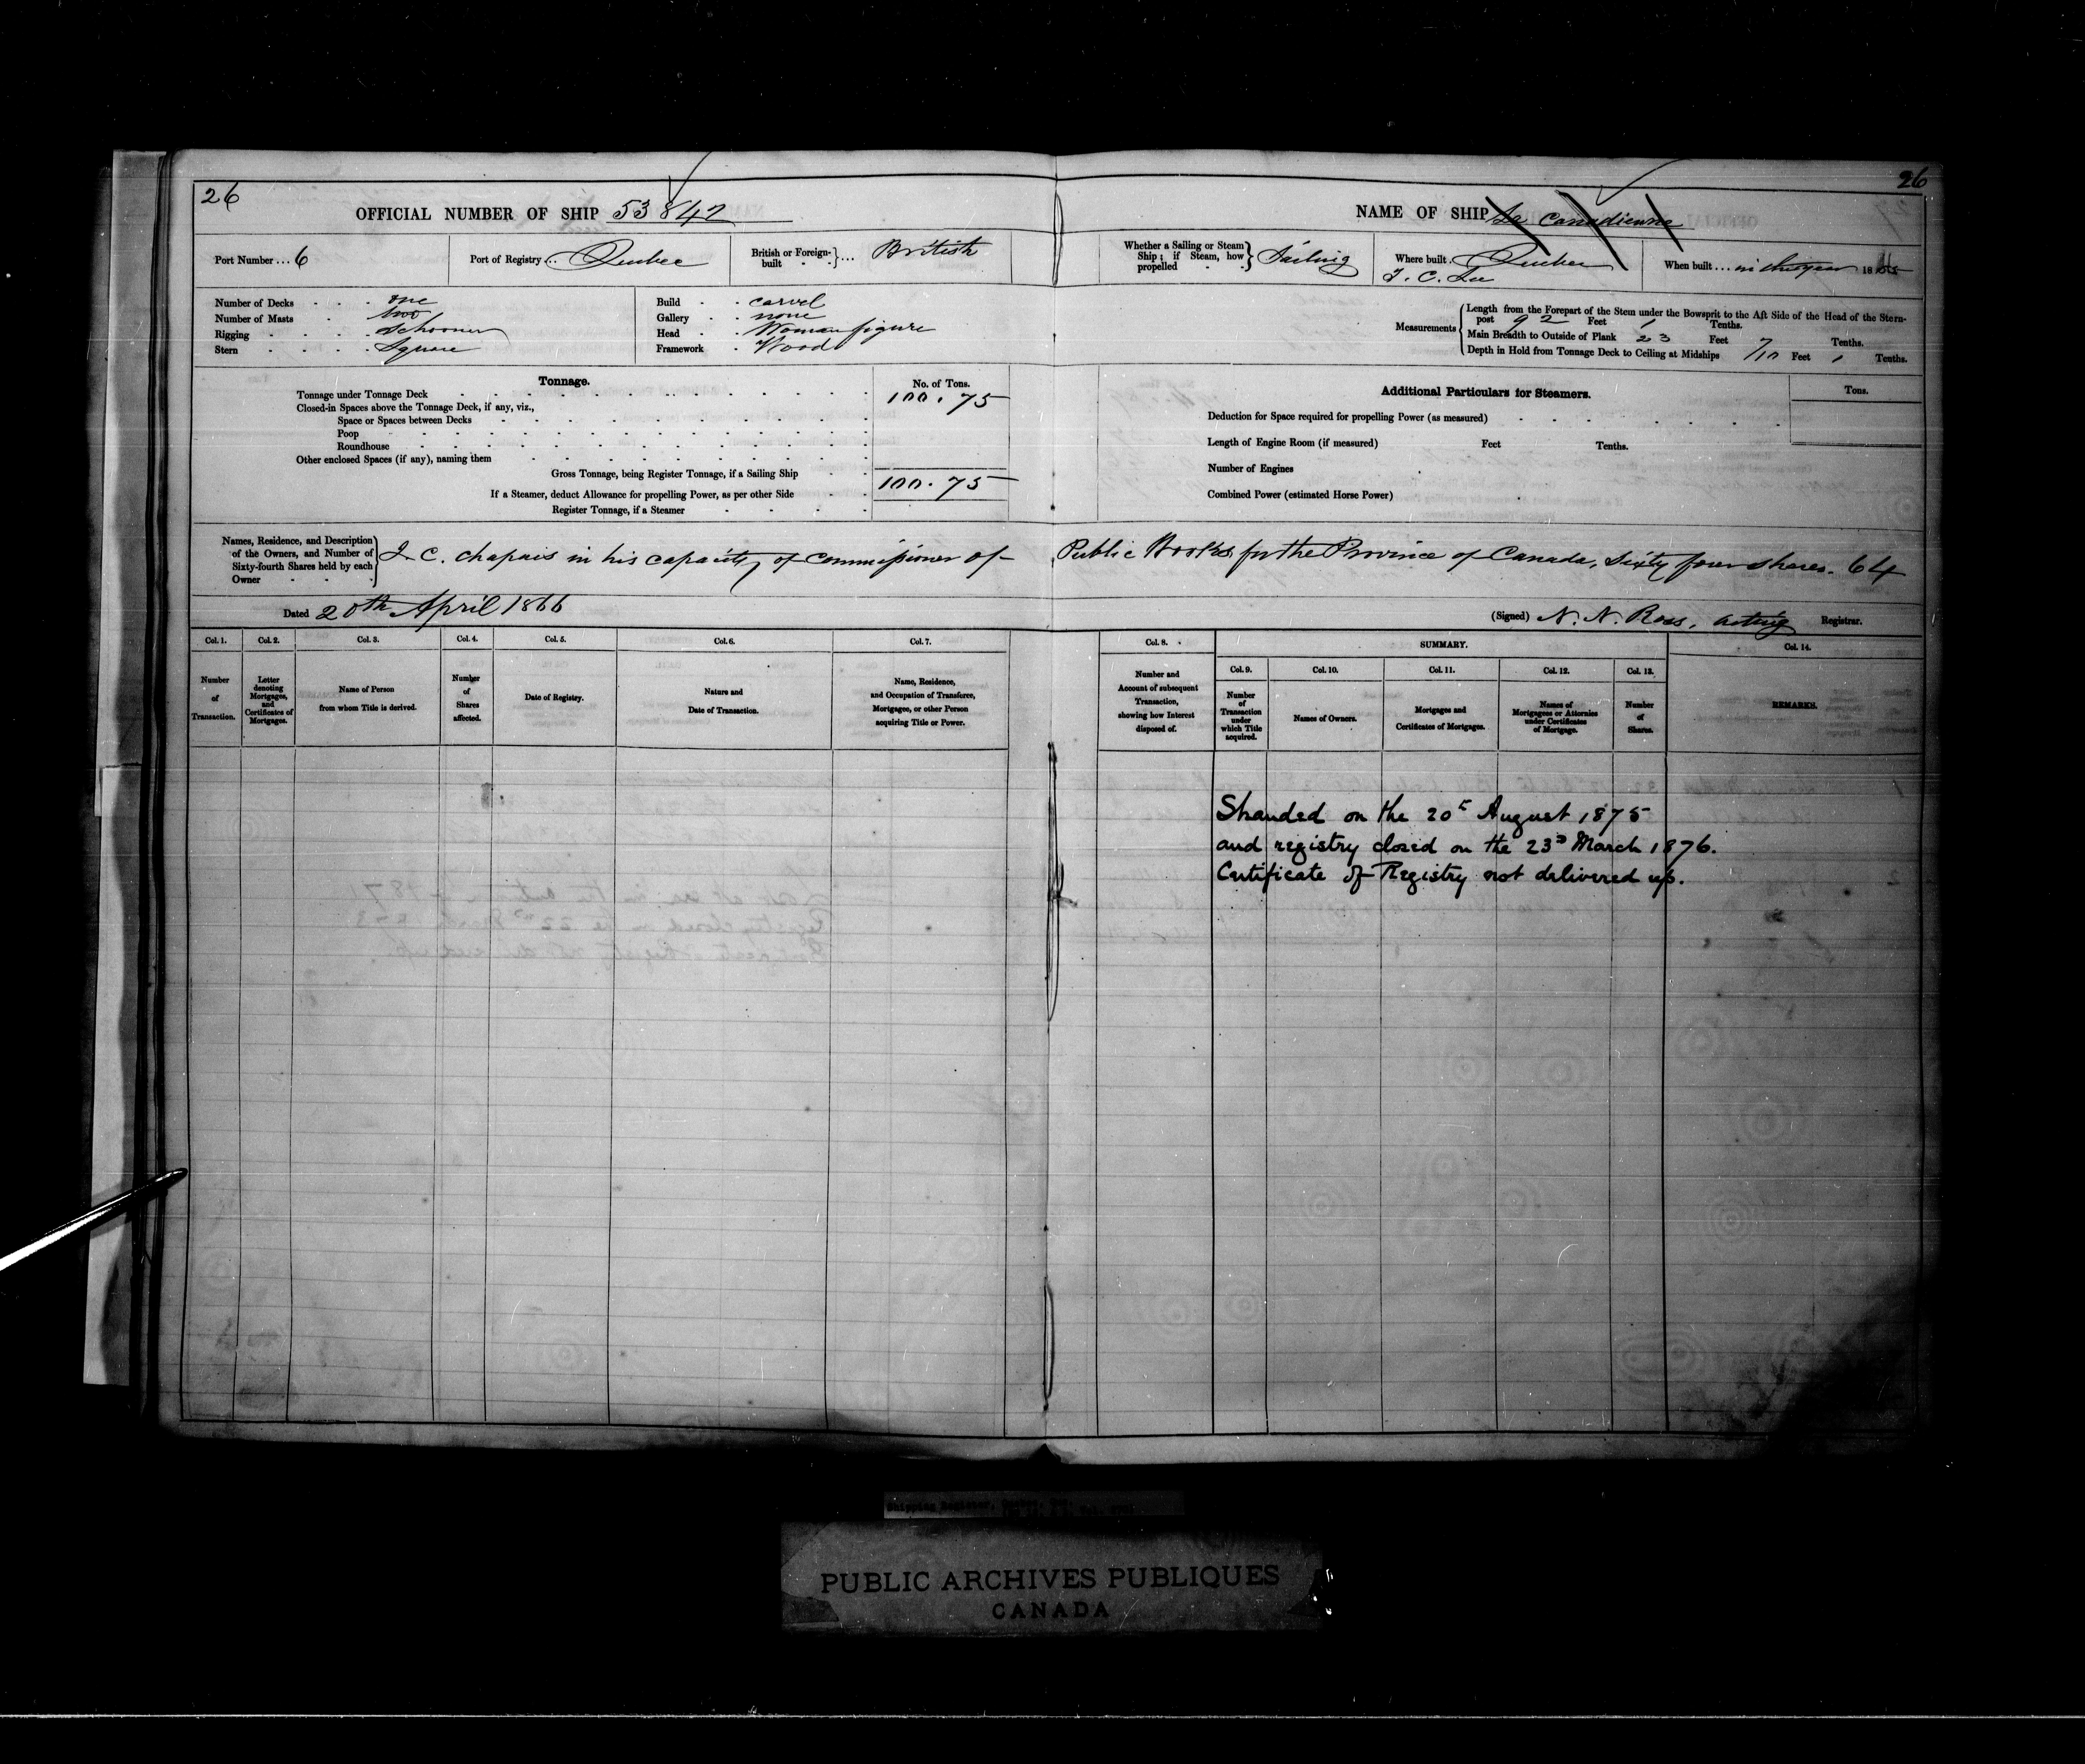 26
26
OFFICIAL NUMBER OF SHIP 53842
NAME OF SHIP La Canadienne
Port Number ... 6
Port of Registry ... Quebec
British or Foreign-built ... British
Whether a Sailing or Steam Ship; if Steam, how propelled Sailing
Where built. Quebec
T. C. Lee
When built ... in the year 18
Number of Decks one
Number of Masts two
Rigging Schooner
Stern Square
Build carvel
Gallery none
Head Woman figure
Framework Wood
Measurements
Length from the Forepart of the Stem under the Bowsprit to the Aft Side of the Head of the Stern-
post 92 Feet 1 Tenths.
Main Breadth to Outside of Plank 23 Feet 7/10 Tenths.
Depth in Hold from Tonnage Deck to Ceiling at Midships Feet 1 Tenths.
Tonnage.
No. of Tons.
Tonnage under Tonnage Deck 100.75
Closed-in Spaces above the Tonnage Deck, if any, viz.,
Space or Spaces between Decks
Poop
Roundhouse
Other enclosed Spaces (if any), naming them
Gross Tonnage, being Register Tonnage, if a Sailing Ship
100.75
If a Steamer, deduct Allowance for propelling Power, as per other Side
Register Tonnage, if a Steamer
Additional Particulars for Steamers.
Tons.
Deduction for Space required for propelling Power (as measured)
Length of Engine Room (if measured) Feet Tenths.
Number of Engines
Combined Power (estimated Horse Power)
Names, Residence, and Description
of the Owners, and Number of
Sixty-fourth Shares held by each
Owner
J. C. Chapais in his capacity of Commissioner of Public Works for the Province of Canada, Sixty four shares. 64
Dated 20th April 1866
(Signed) N. N. Ross, acting Registrar.
Col. 1.
Col. 2.
Col. 3.
Col. 4.
Col. 5.
Col. 6.
Col. 7.
Col. 8.
SUMMARY.
Col. 14.
Col. 9.
Col. 10.
Col. 11.
Col. 12.
Col. 13.
Number of Transaction.
Letter denoting Mortgages, and Certificates of Mortgages.
Name of Person from whom Title is derived.
Number of Shares affected.
Date of Registry.
Nature and Date of Transaction.
Name, Residence, and Occupation of Transferee, Mortgagee, or other Person acquiring Title or Power.
Number and Account of subsequent Transaction, showing how Interest disposed of.
Number of Transaction under which Title acquired.
Names of Owners.
Mortgages and Certificates of Mortgages.
Names of Mortgagees or Attornies under Certificates of Mortgage.
Number of Shares.
REMARKS.
Stranded on the 20th August 1875
and registry closed on the 23d March 1876.
Certificate of Registry not delivered up.
Shipping Register, Quebec, Que.
PUBLIC ARCHIVES PUBLIQUES
CANADA